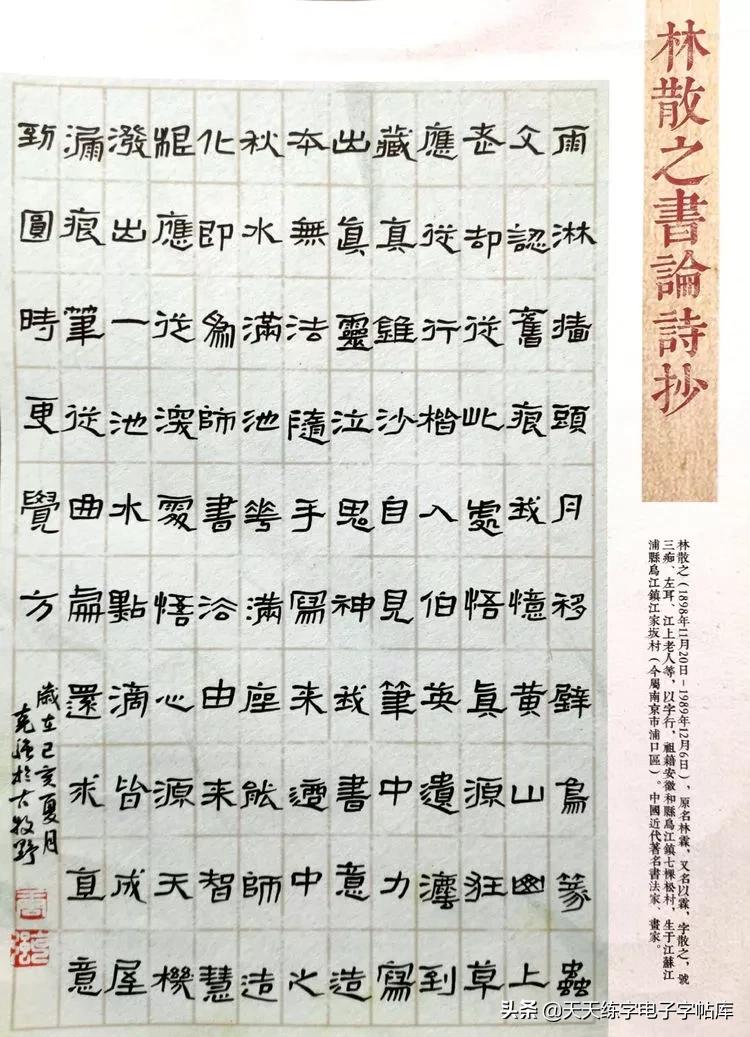 林散之書論詩抄
雨淋牆頭月移壁鳥篆蟲
文認舊痕我憶黃山幽上
老却從此處悟眞源狂草
應從行楷入伯英遺灋到
藏真錐沙自見筆中力寫
出眞靈泣鬼神我書意造
本無法隨手寫来適中之
秋水滿池花滿座能師造
化即為師書法由来智慧
根應從深處悟心源天機
潑出一池水點滴皆成屋
漏痕筆從曲處還求直意
到圓時更覺方
歲在己亥夏月
於古牧野
林散之(1898年11月20日-1989年12月6日),原名林霖,又名以霖,字散之,號
三痴、左耳、江上老人等,以字行,祖籍安徽和縣烏江鎮七棵松村,生于江蘇江
浦縣烏江鎮江家坂村(今屬南京市浦口區)。中國近代著名書法家、畫家。
头条 @天天练字电子字帖库